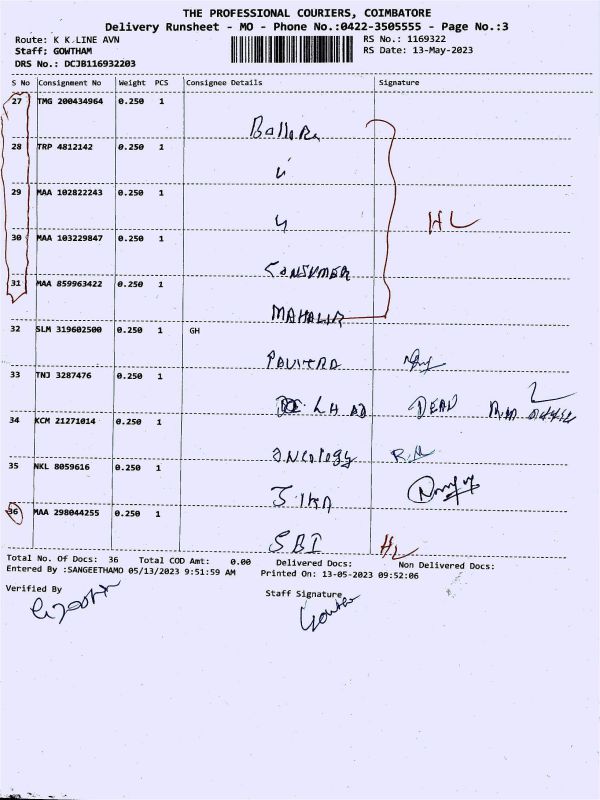 THE PROFESSIONAL COURIERS, COIMBATORE
Delivery Runsheet - MO - Phone No.:0422-3505555 - Page No.:3
Route: K K LINE AVN
RS No.: 1169322
Staff: GOWTHAM
RS Date: 13-May-2023
DRS No.: DCJB116932203
S No Consignment No Weight PCS Consignee Details Signature
27 TMG 200434964 0.250 1
28 TRP 4812142 0.250 1
29 MAA 102822243 0.250 1
HL
30 MAA 103229847 0.250 1
CONSUMER
31 MAA 859963422 0.250 1
32 SLM 319602500 0.250 1 GH
PAVITRA
33 TNJ 3287476 0.250 1
DEAN
34 KCM 21271014 0.250 1
oncology
35 NKL 8059616 0.250 1
36 MAA 298044255 0.250 1
SBI HL
Total No. Of Docs: 36 Total COD Amt: 0.00 Delivered Docs: Non Delivered Docs:
Entered By :SANGEETHAMO 05/13/2023 9:51:59 AM Printed On: 13-05-2023 09:52:06
Verified By Staff Signature